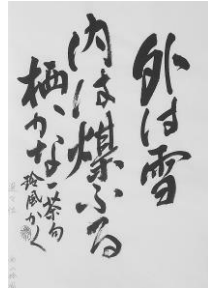 外は雪
内は煤ふる
栖かな
一茶句
玲風かく